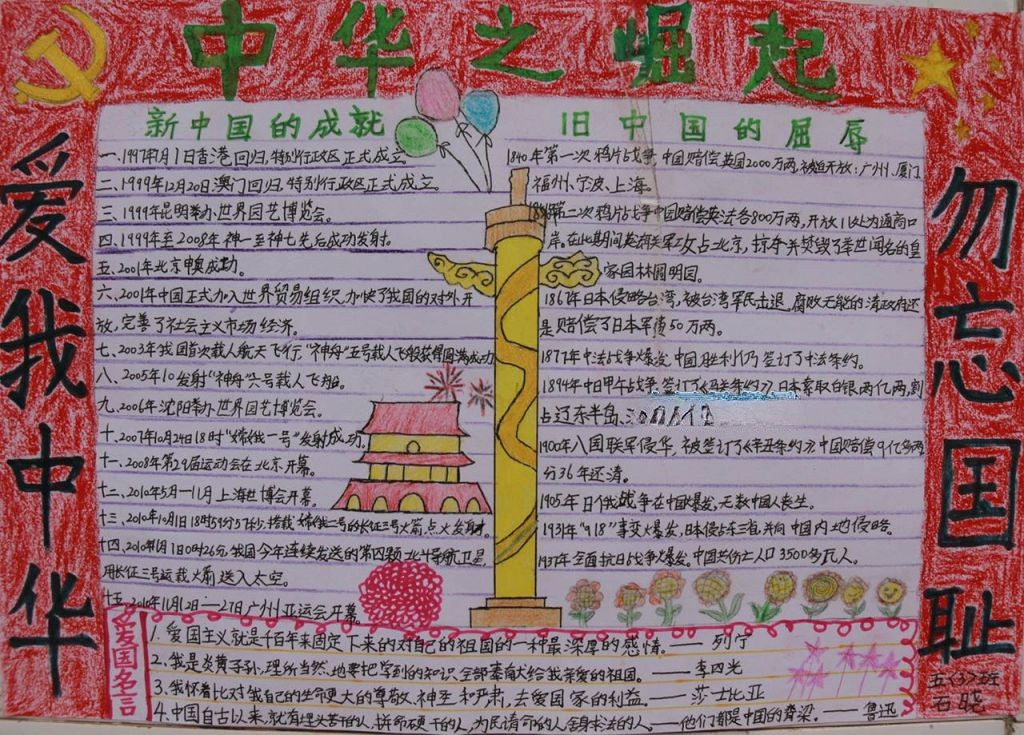 中华之崛起
爱我中华
勿忘国耻
新中国的成就
一、1997年7月1日香港回归,特别行政区正式成立
二、1999年12月20日澳门回归,特别行政区正式成立。
三、1999年昆明举办世界园艺博览会。
四、1999年至2008年神一至神七先后成功发射。
五、2001年北京申奥成功。
六、2001年中国正式加入世界贸易组织,加快了我国的对外开
放,完善了社会主义市场经济。
七、2003年我国首次载人航天飞行“神舟”五号载人飞船获得圆满成功
八、2005年10发射“神舟”六号载人飞船。
九、2006年沈阳举办世界园艺博览会。
十、2007年10月24日18时“嫦娥一号”发射成功。
十一、2008年第29届运动会在北京开幕。
十二、2010年5月一11月上海世博会开幕。
十三、2010年10月1日18时59分57秒,搭载嫦娥二号的长征三号火箭点火发射。
十四、2010年 月1日0时26分,我国今年连续发送的第四颗北斗导航卫星,
用长征三号运载火箭送入太空。
十五、2010年11月12日一27日广州亚运会开幕
旧中国的屈辱
1840年第一次鸦片战争,中国赔偿英国2000万两,被迫开放:广州、厦门
福州、宁波、上海。
第二次鸦片战争中国赔偿英法各800万两,开放11处为通商口
岸。在此期间英法联军攻占北京,掠夺并焚毁了举世闻名的皇
家园林圆明园。
186 年日本侵略台湾,被台湾军民击退,腐败无能的清政府还
是赔偿了日本军费50万两。
187 年中法战争爆发,中国胜利仍签订了中法条约。
1894年中日甲午战争,签订了《马关条约》,日本索取白银两亿两,割
占辽东半岛、
1900年八国联军侵华,被签订了《辛丑条约》中国赔偿9亿多两
分36年还清。
1905年日俄战争在中国爆发,无数中国人丧生。
1931年“918”事变爆发,日本侵占东三省,并向中国内地侵略。
1937年全面抗日战争爆发。中国共伤亡人口3500多万人。
爱国名言
1.爱国主义就是千百年来固定下来的对自己的祖国的一种最深厚的感情。——列宁
2.我是炎黄子孙,理所当然地要把学到的知识全部奉献给我亲爱的祖国。——李四光
3.我怀着比对我自己的生命更大的尊敬、神圣和严肃,去爱国家的利益。——莎士比亚
4.中国自古以来,就有埋头苦干的人,拼命硬干的人,为民请命的人,舍身求法的人——他们都是中国的脊梁。——鲁迅
五〈3〉班
石晓